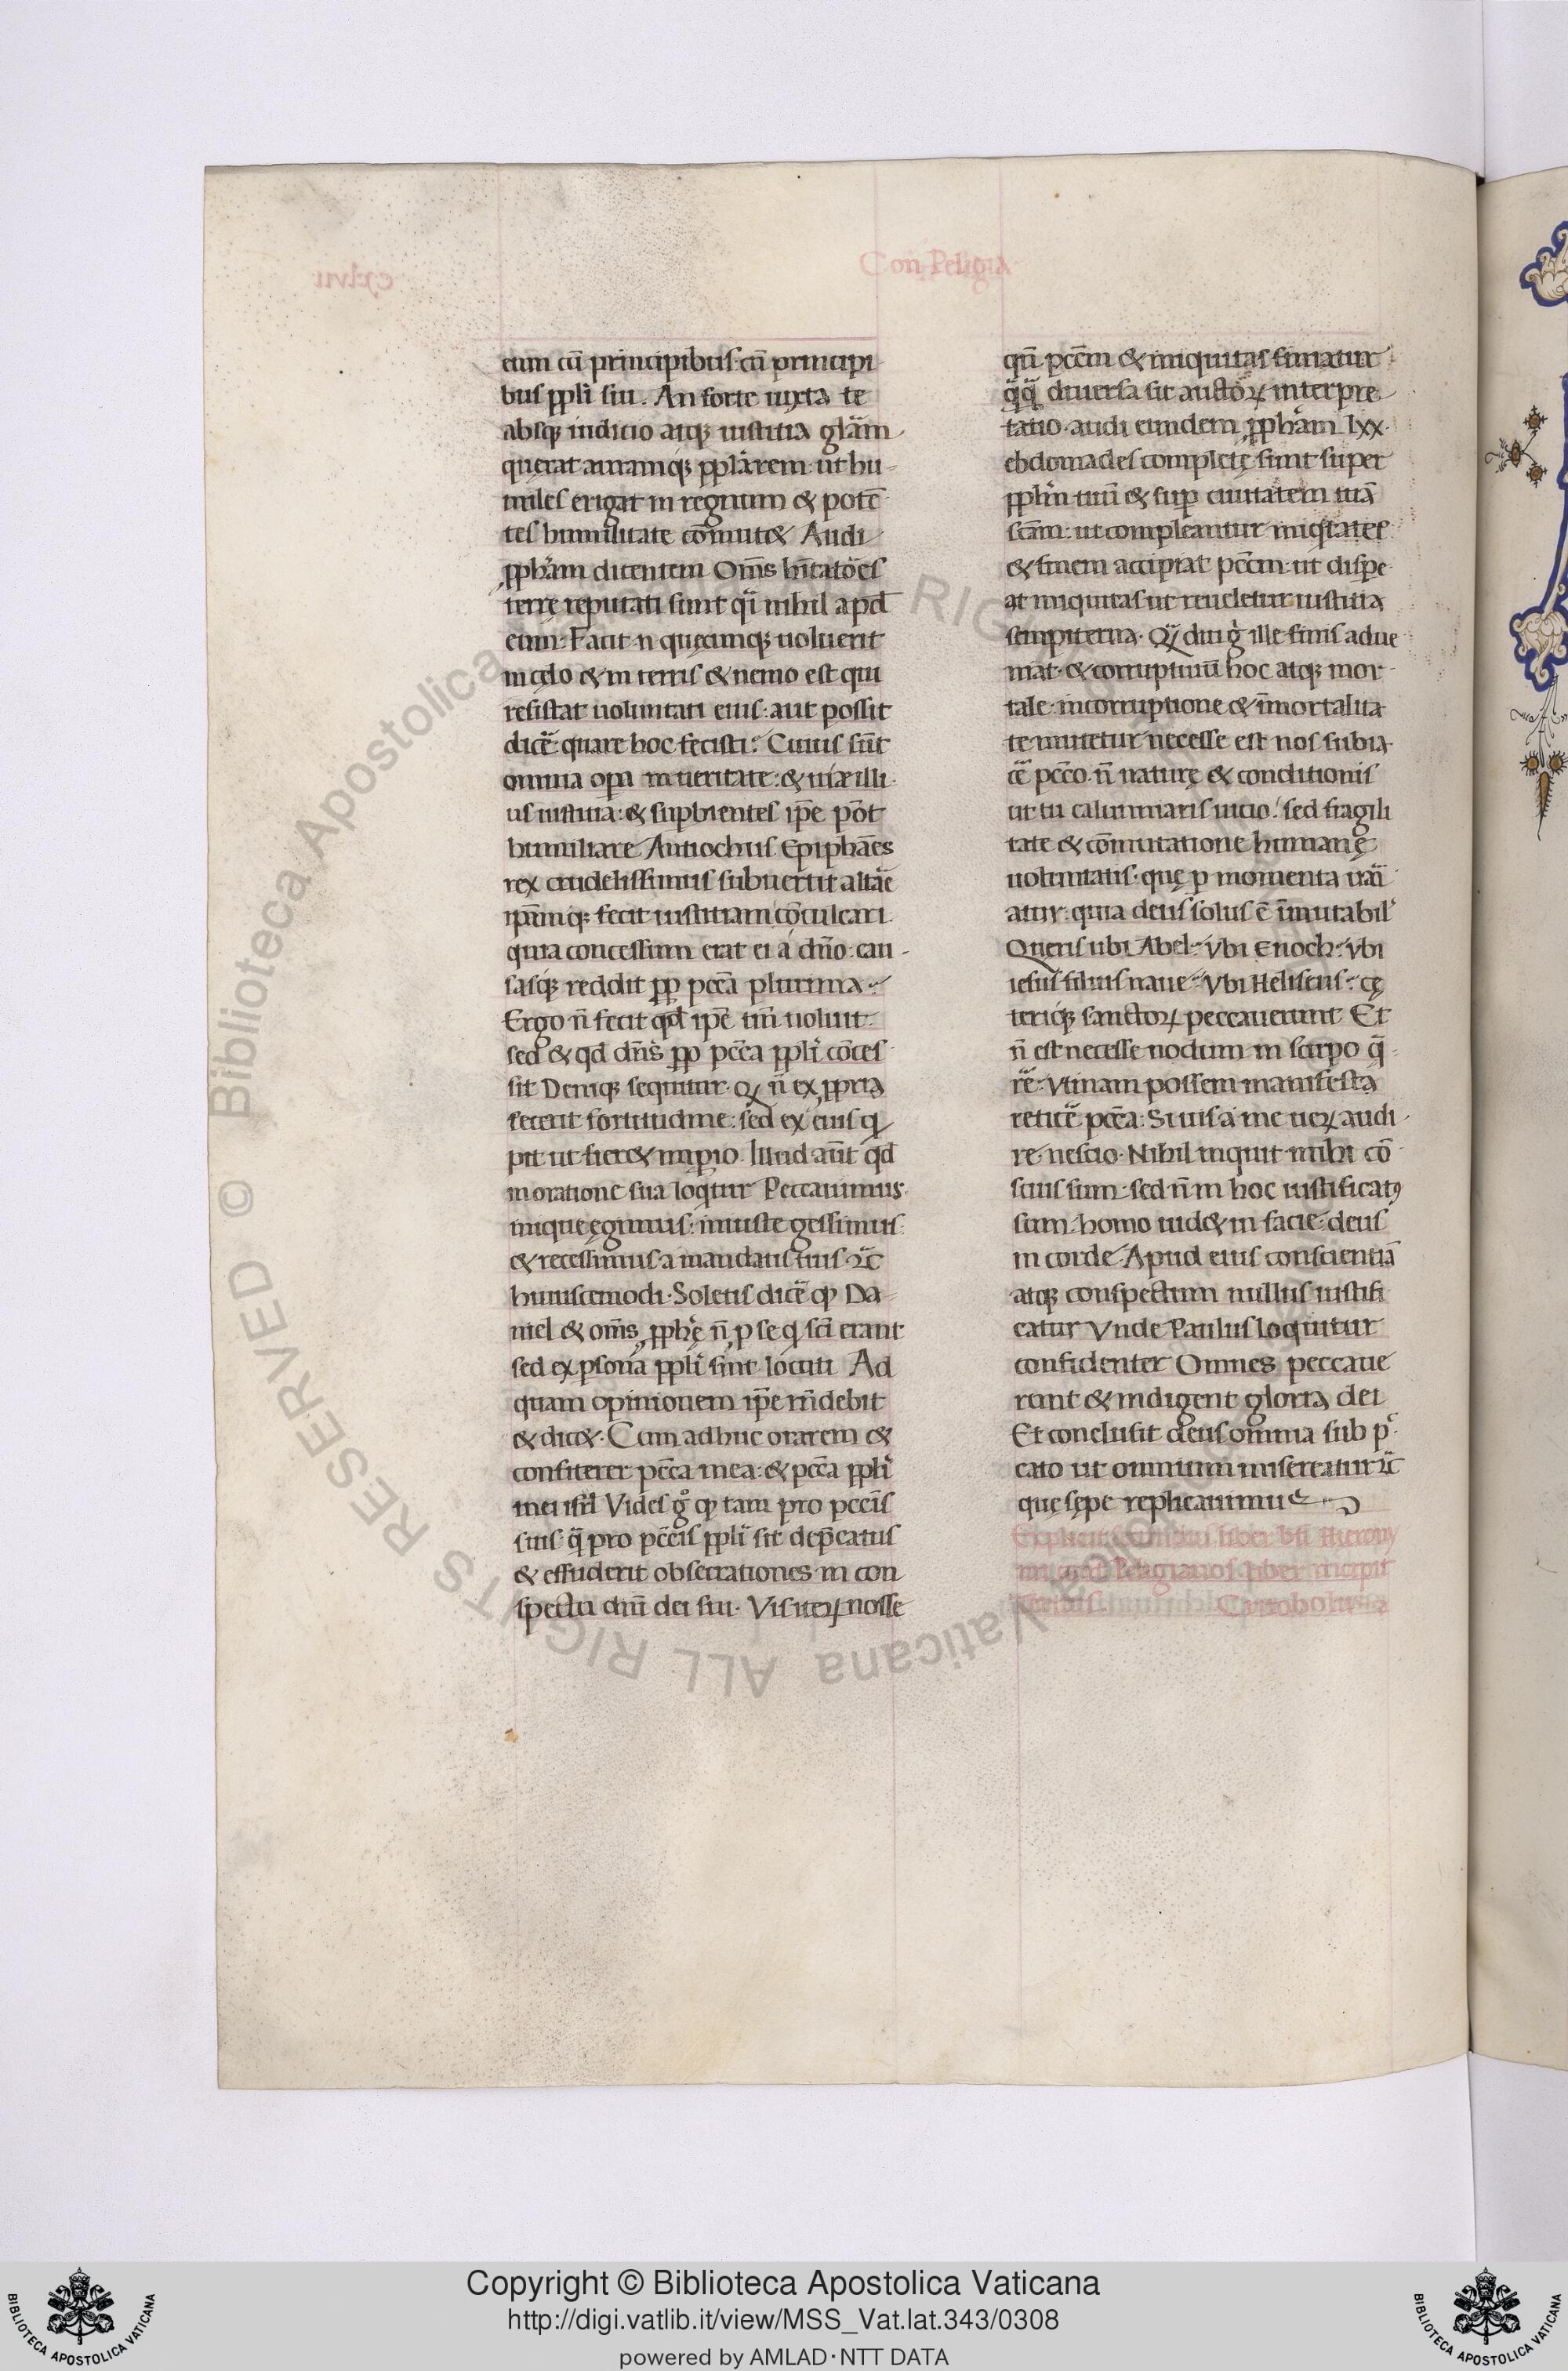 Con Peligiā
cxlvıı
eum cū principibus: cū principi
bus ppli sui. An forte iuxta te
absq; iudicio atq; iustitia glām
quęrat auramq; pplārem: ut hu
miles erigat in regnum & potē
tes humilitate cōmutet Audi
pphām dicentem Om̄s hītatōes
terrę reputati sunt qi nihil apd
eum: Facit n̄ quęcumq; uoluerit
in cęlo & in terris & nemo est qui
resistat uoluntati eius: aut possit
dicē: quare hoc fecisti? Cuius sūt
omnia opa in ueritate: & uiæ illi
us iustitia: & supbientes ip̄e pōt
humiliare Antiochus Epiphāes
rex crudelissimus subuertit altāē
ipāmq; fecit iustitiam cōculcari
quia concessum erat ei a dn̄o: cau
sasq; reddit pp pccā plurima.
Ergo n̄ fecit qd ip̄e im̄ uoluit:
sed & qd dn̄s pp pccā ppli cōces
sit Deniq; sequitur. Q n̄ ex ppria
fecerit fortitudine: sed ex eius q
pit ut fieret impio. Illud aūt qd
in oratione sua loqtur Peccauimus
inique ęgimus: iniuste gessimus
& recessimus a mandatis tuis &c̄
huiuscemodi. Soletis dicē q Da
niel & om̄s pphę n̄ p se q sci erant
sed ex psona ppli sint locuti Ad
quam opinionem ip̄e rn̄debit
& dicet. Cum adhuc orarem &
confiterer pccā mea: & pccā ppli
mei isrl Vides g q tam pro pccīs
suis q̄ pro pccīs ppli sit dep̄catus
& effuderit obsecrationes in con
spectu dn̄i dei sui. Vis uerꝝ nosse
qn̄ pccm & iniquitas finiatur
q̄q̄ diuersa sit auctōꝝ interpre
tatio. audi eundem pphām lxx.
ebdomades completę sunt super
pplm tuū & sup ciuitatem tuā
scām: ut compleantur iniqtates
& finem accipiat pccm: ut dispe
at iniquitas ut reueletur iustitia
sempiterna. Qdiu g ille finis adue
niat. & corruptiuū hoc atq; mor
tale: incorruptione & īmortalita
te mutetur necesse est nos subia
cē pccō. n̄ naturę & conditionis
ut tu calumniaris uicio: sed fragili
tate & cōmutatione humanę
uoluntatis: quę p momenta uāi
atur: quia deus solus ē īmutabil'
Queris ubi Abel: Vbi Enoch: Vbi
iesus filius naue: Vbi Heliseus: Cę
teriq; sanctoꝝ peccauerunt Et
n̄ est necesse nodum in scirpo q̄
rē: Vtinam possem manifesta
reticē pccā: Si uis a me ueꝝ audi
re nescio. Nihil inquit mihi cō
scius sum: sed n̄ in hoc iustificatꝯ
sum: homo uidet in facie: deus
in corde. Apud eius conscientiā
atq; conspectum nullus iustifi
catur Vnde Paulus loquitur
confidenter Omnes peccaue
runt & indigent gloria dei
Et conclusit deus omnia sub p
cato ut omnium misereatur &c̄
quę sępe replicauimus
Explicit secundus liber bti Hierony
mi Pelagianos liber incipit
Critobolus
© Biblioteca Apostolica Vaticana ALL RIGHTS RESERVED
Copyright © Biblioteca Apostolica Vaticana
http://digi.vatlib.it/view/MSS_Vat.lat.343/0308
powered by AMLAD·NTT DATA
BIBLIOTECA APOSTOLICA VATICANA
BIBLIOTECA APOSTOLICA VATICANA